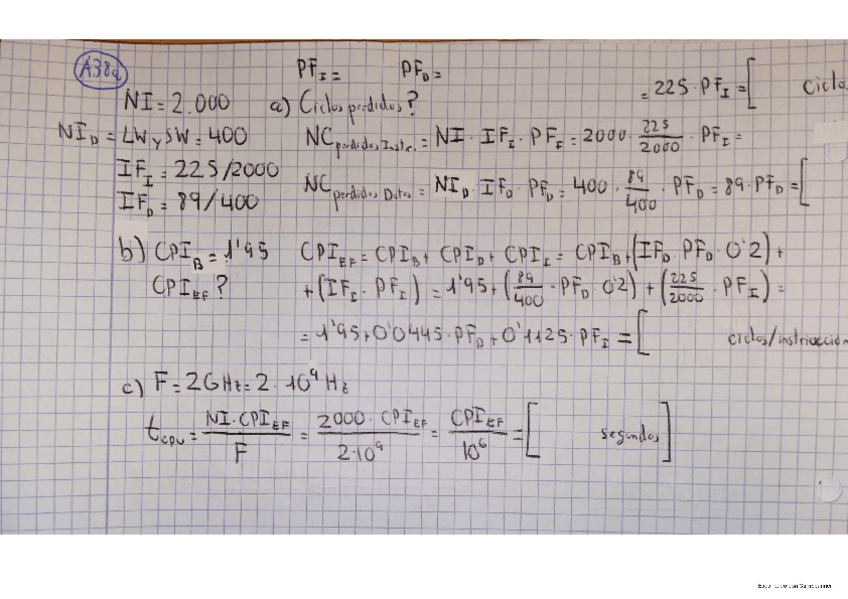 A38a
PF_I = PF_D =
NI = 2.000 a) Ciclos perdidos? = 225 · PF_I = [ ciclo
NI_D = LW y SW = 400 NC_perdidos Instr. = NI · IF_I · PF_I = 2000 · 225/2000 · PF_I =
IF_I = 225/2000
IF_D = 89/400 NC_perdidos Datos = NI_D · IF_D · PF_D = 400 · 89/400 · PF_D = 89 · PF_D = [
b) CPI_B = 1'95 CPI_EF = CPI_B + CPI_D + CPI_I = CPI_B + (IF_D · PF_D · 0'2) +
CPI_EF? + (IF_I · PF_I) = 1'95 + (89/400 · PF_D · 0'2) + (225/2000 · PF_I) =
= 1'95 + 0'0445 · PF_D + 0'1125 · PF_I = [ ciclos/instrucción
c) F = 2GHz = 2 · 10^9 Hz
t_CPU = NI · CPI_EF / F = 2000 · CPI_EF / 2 · 10^9 = CPI_EF / 10^6 = [ segundos ]